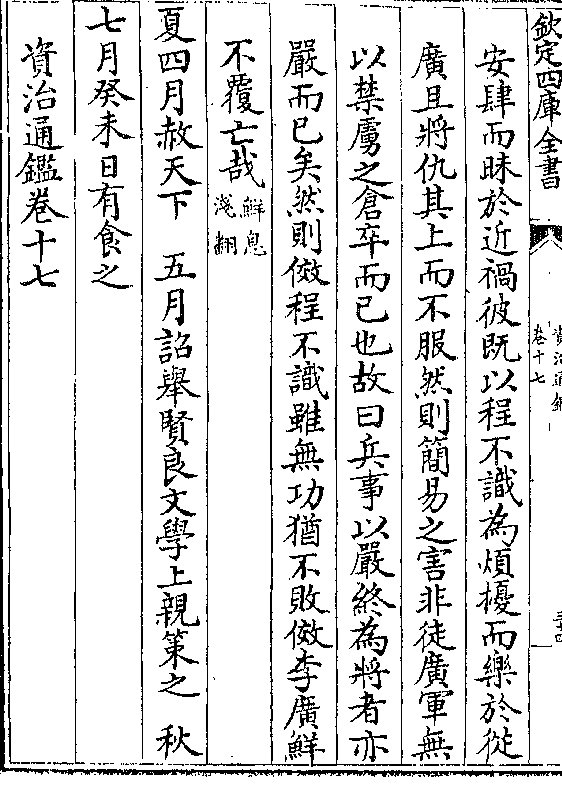 欽定四庫全書
資治通鑑
卷十七
安肆而昧於近禍彼既以程不識為煩擾而樂於從
廣且將仇其上而不服然則簡易之害非徒廣軍無
以禁虜之倉卒而已也故曰兵事以嚴終為將者亦
嚴而已矣然則傚程不識雖無功猶不敗傚李廣鮮
不覆亡哉鮮息淺翻
夏四月赦天下　五月詔舉賢良文學上親策之　秋
七月癸未日有食之
資治通鑑卷十七